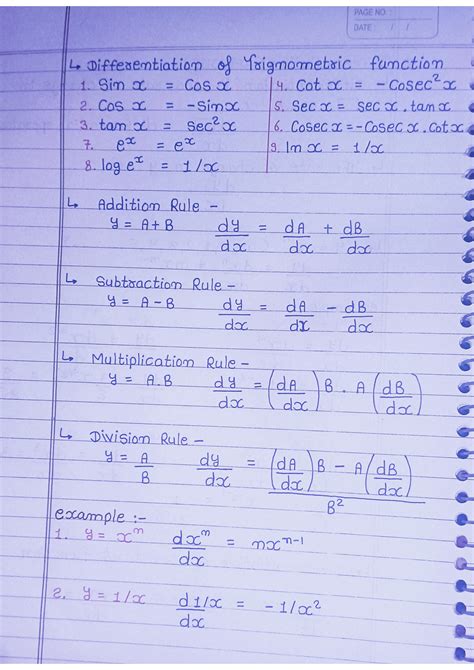 PAGE NO.
DATE / /
↳ Differentiation of Trignometric function
1. Sin x = Cos x
2. Cos x = -Sinx
3. tan x = sec²x
7. eˣ = eˣ
8. log eˣ = 1/x
4. Cot x = -Cosec²x
5. Sec x = sec x . tan x
6. Cosec x = -Cosec x . Cot x
9. ln x = 1/x
↳ Addition Rule -
y = A + B dy/dx = dA/dx + dB/dx
↳ Subtraction Rule -
y = A - B dy/dx = dA/dx - dB/dx
↳ Multiplication Rule -
y = A.B dy/dx = (dA/dx) B . A (dB/dx)
↳ Division Rule -
y = A/B dy/dx = ((dA/dx) B - A (dB/dx))/B²
example :-
1. y = xᵐ dxᵐ/dx = nxⁿ⁻¹
2. y = 1/x d1/x/dx = -1/x²